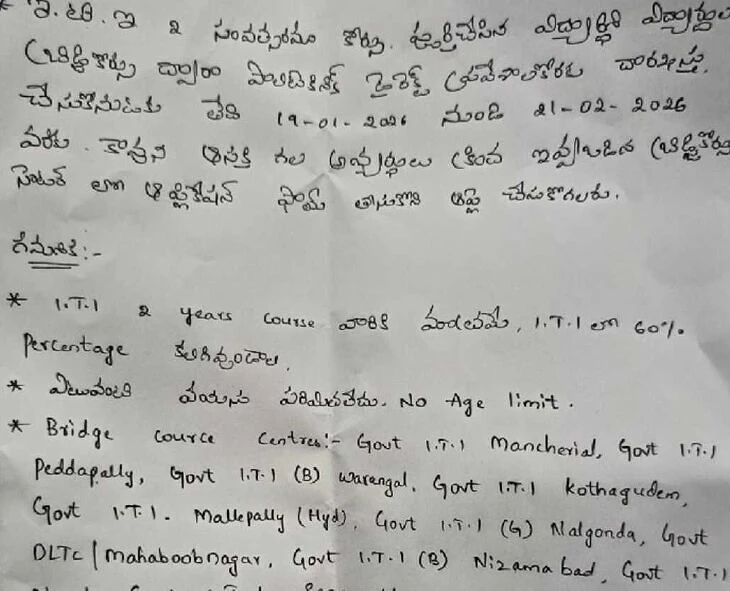 * ఐ.టి.ఐ 2 సంవత్సరాల కోర్సు పూర్తిచేసిన విద్యార్థిని విద్యార్థులు
బ్రిడ్జికోర్సు ద్వారా పాలిటెక్నిక్ డైరెక్ట్ ప్రవేశాలకొరకు దరఖాస్తు
చేసుకొనుటకు తేది 19-01-2026 నుండి 21-02-2026
వరకు. కావున ఆసక్తి గల అభ్యర్థులు క్రింద ఇవ్వబడిన బ్రిడ్జికోర్సు
సెంటర్ లలో అప్లికేషన్ ఫామ్ తీసుకొని అప్లై చేసుకోగలరు.
గమనిక:-
* I.T.I 2 years course వారికి మాత్రమే, I.T.I లో 60%
Percentage కలిగివుండాలి.
* ఎటువంటి వయసు పరిమితిలేదు. No Age limit.
* Bridge cource centres:- Govt I.T.I Mancherial, Govt I.T.I
Peddapally, Govt I.T.I (B) Warangal, Govt I.T.I Kothagudem,
Govt I.T.I. Mallepally (Hyd), Govt I.T.I (G) Nalgonda, Govt
DLTC/Mahaboobnagar, Govt I.T.I (B) Nizamabad, Govt I.T.I